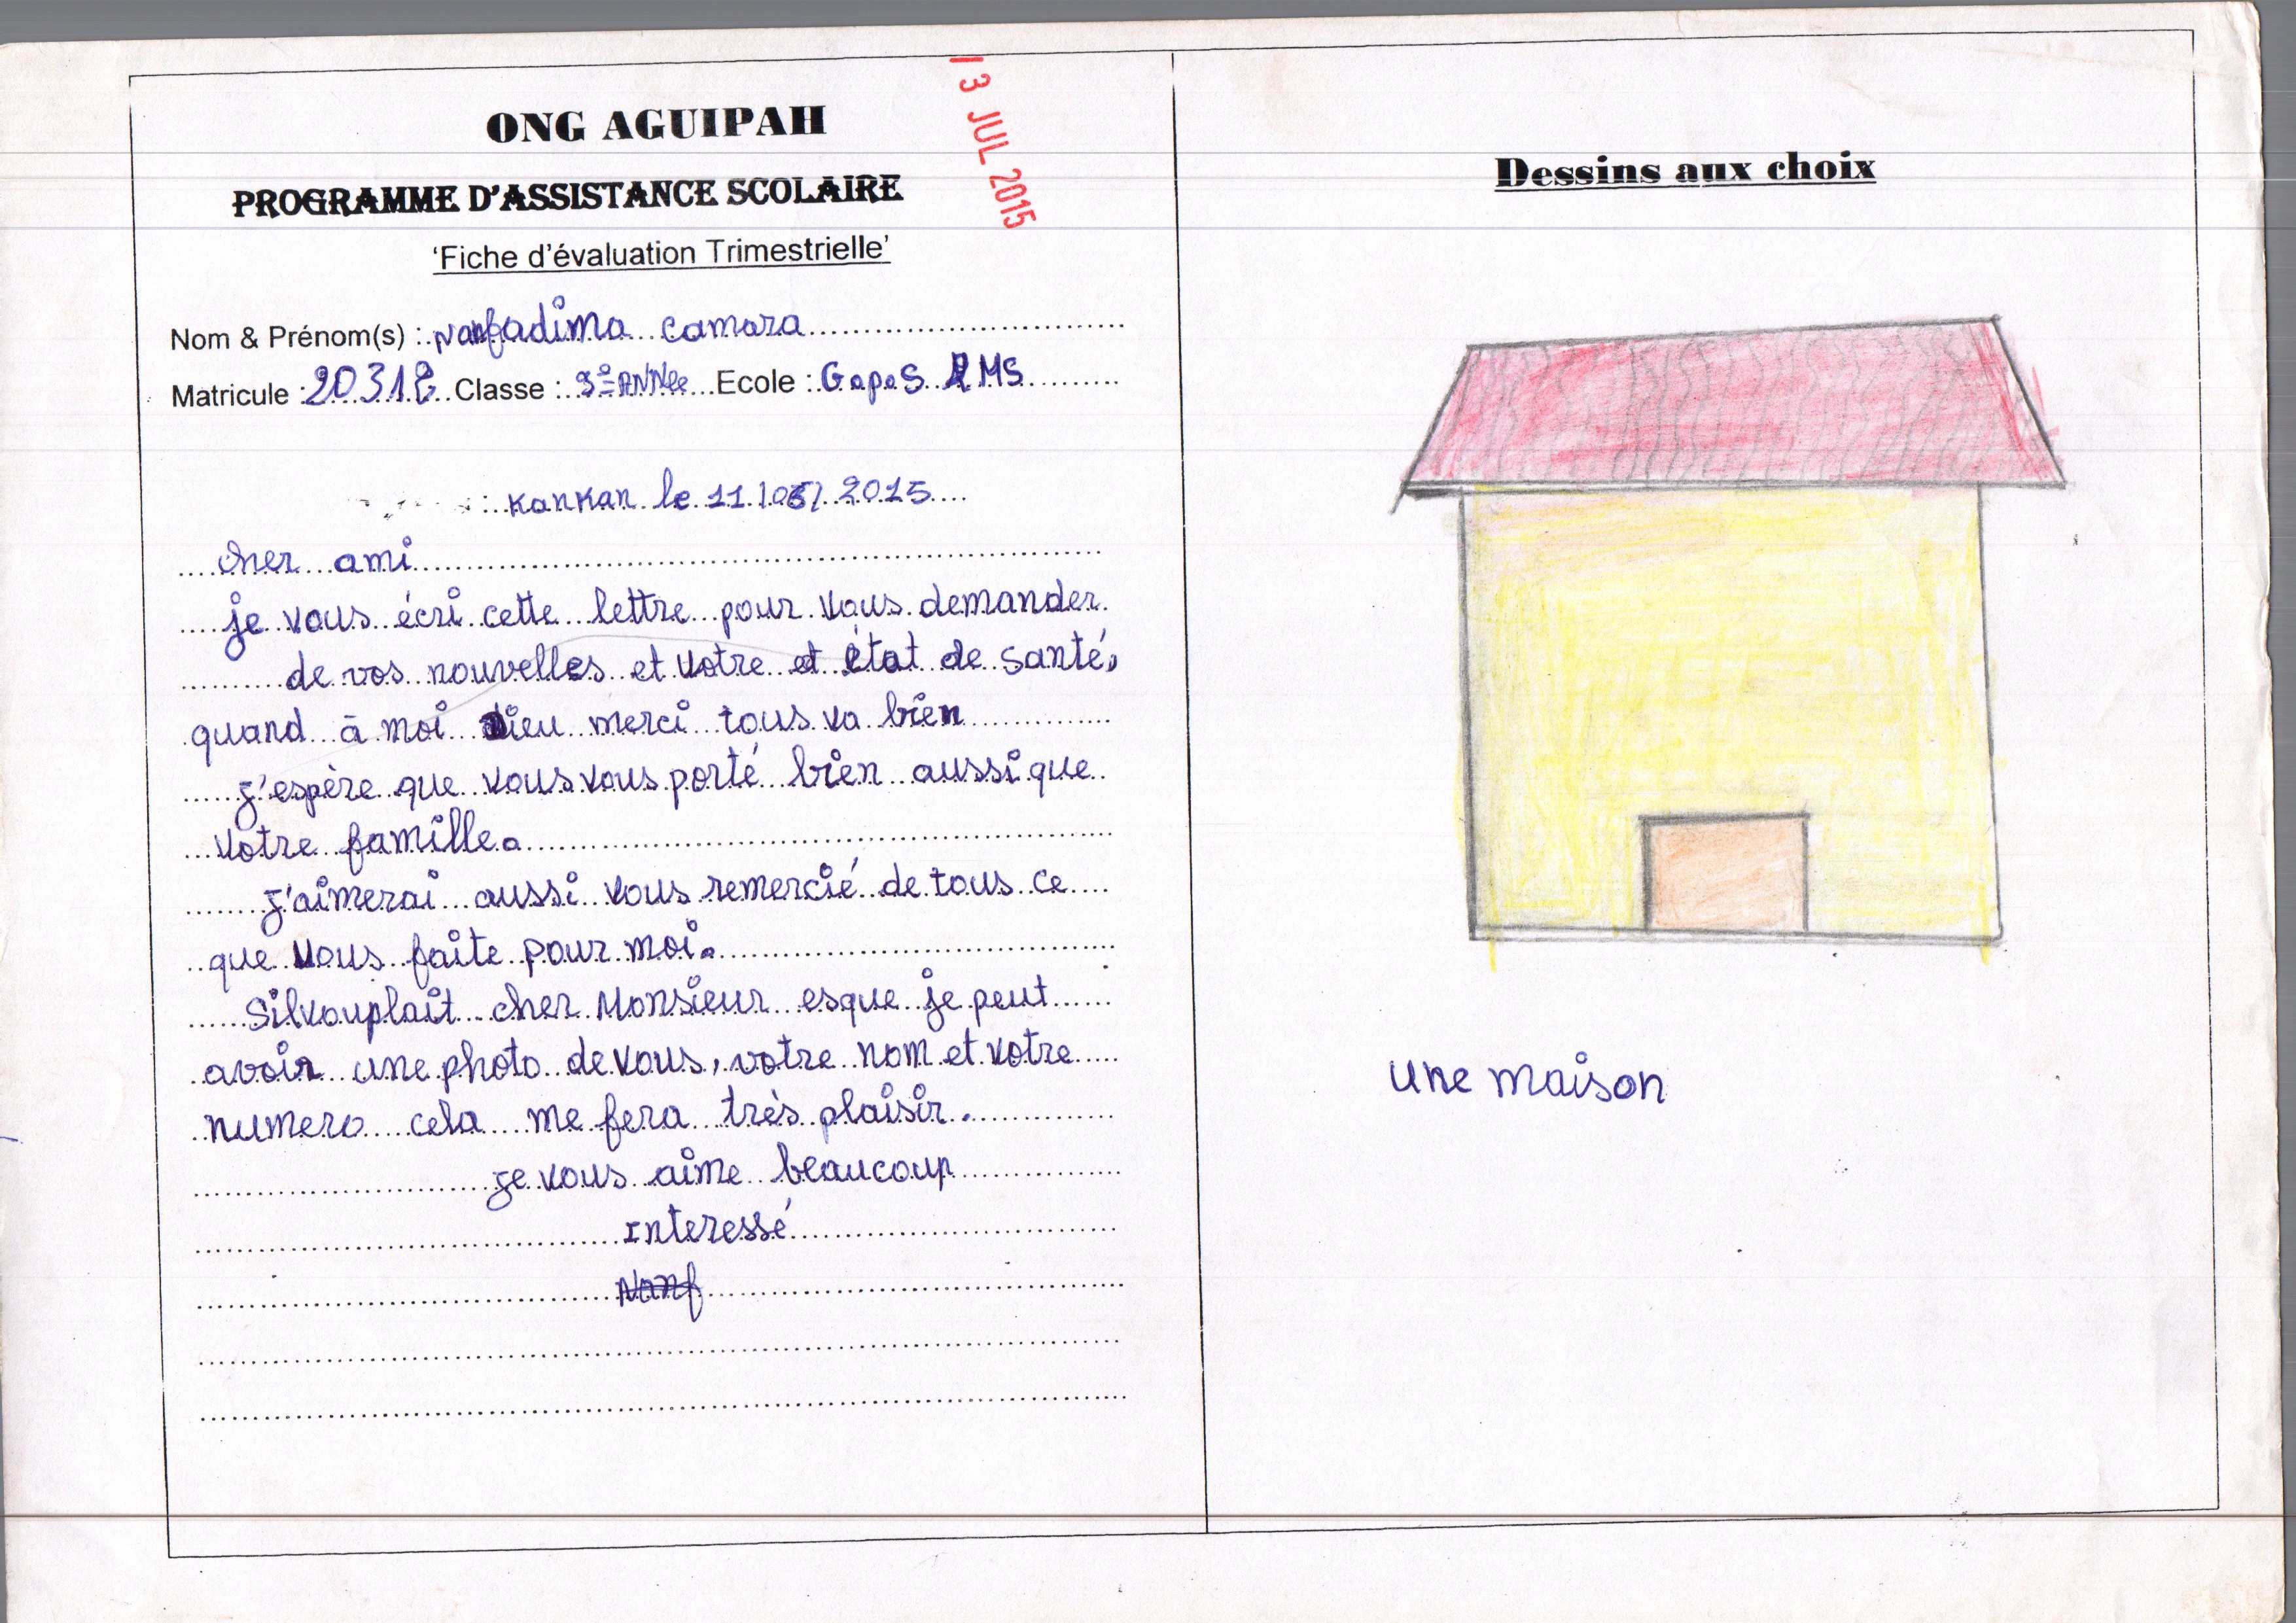 ONG AGUIPAH
PROGRAMME D'ASSISTANCE SCOLAIRE
'Fiche d'évaluation Trimestrielle'
3 JUL 2015
Nom & Prénom(s) : Nanfadima camara
Matricule : 20318 Classe : 9e ANNée Ecole : G.S. RMS
: KanKan le 11/06/2015
cher ami
je vous écri cette lettre pour vous demander
de vos nouvelles et votre et état de santé.
quand à moi Dieu merci tous va bien
j'espère que vous vous porté bien aussi que
votre famille.
j'aimerai aussi vous remercié de tous ce
que vous faite pour moi.
Silvouplait cher Monsieur esque je peut
avoir une photo de vous, votre nom et votre
numero cela me fera très plaisir.
je vous aime beaucoup
Interessé
Nanf
Dessins aux choix
une maison